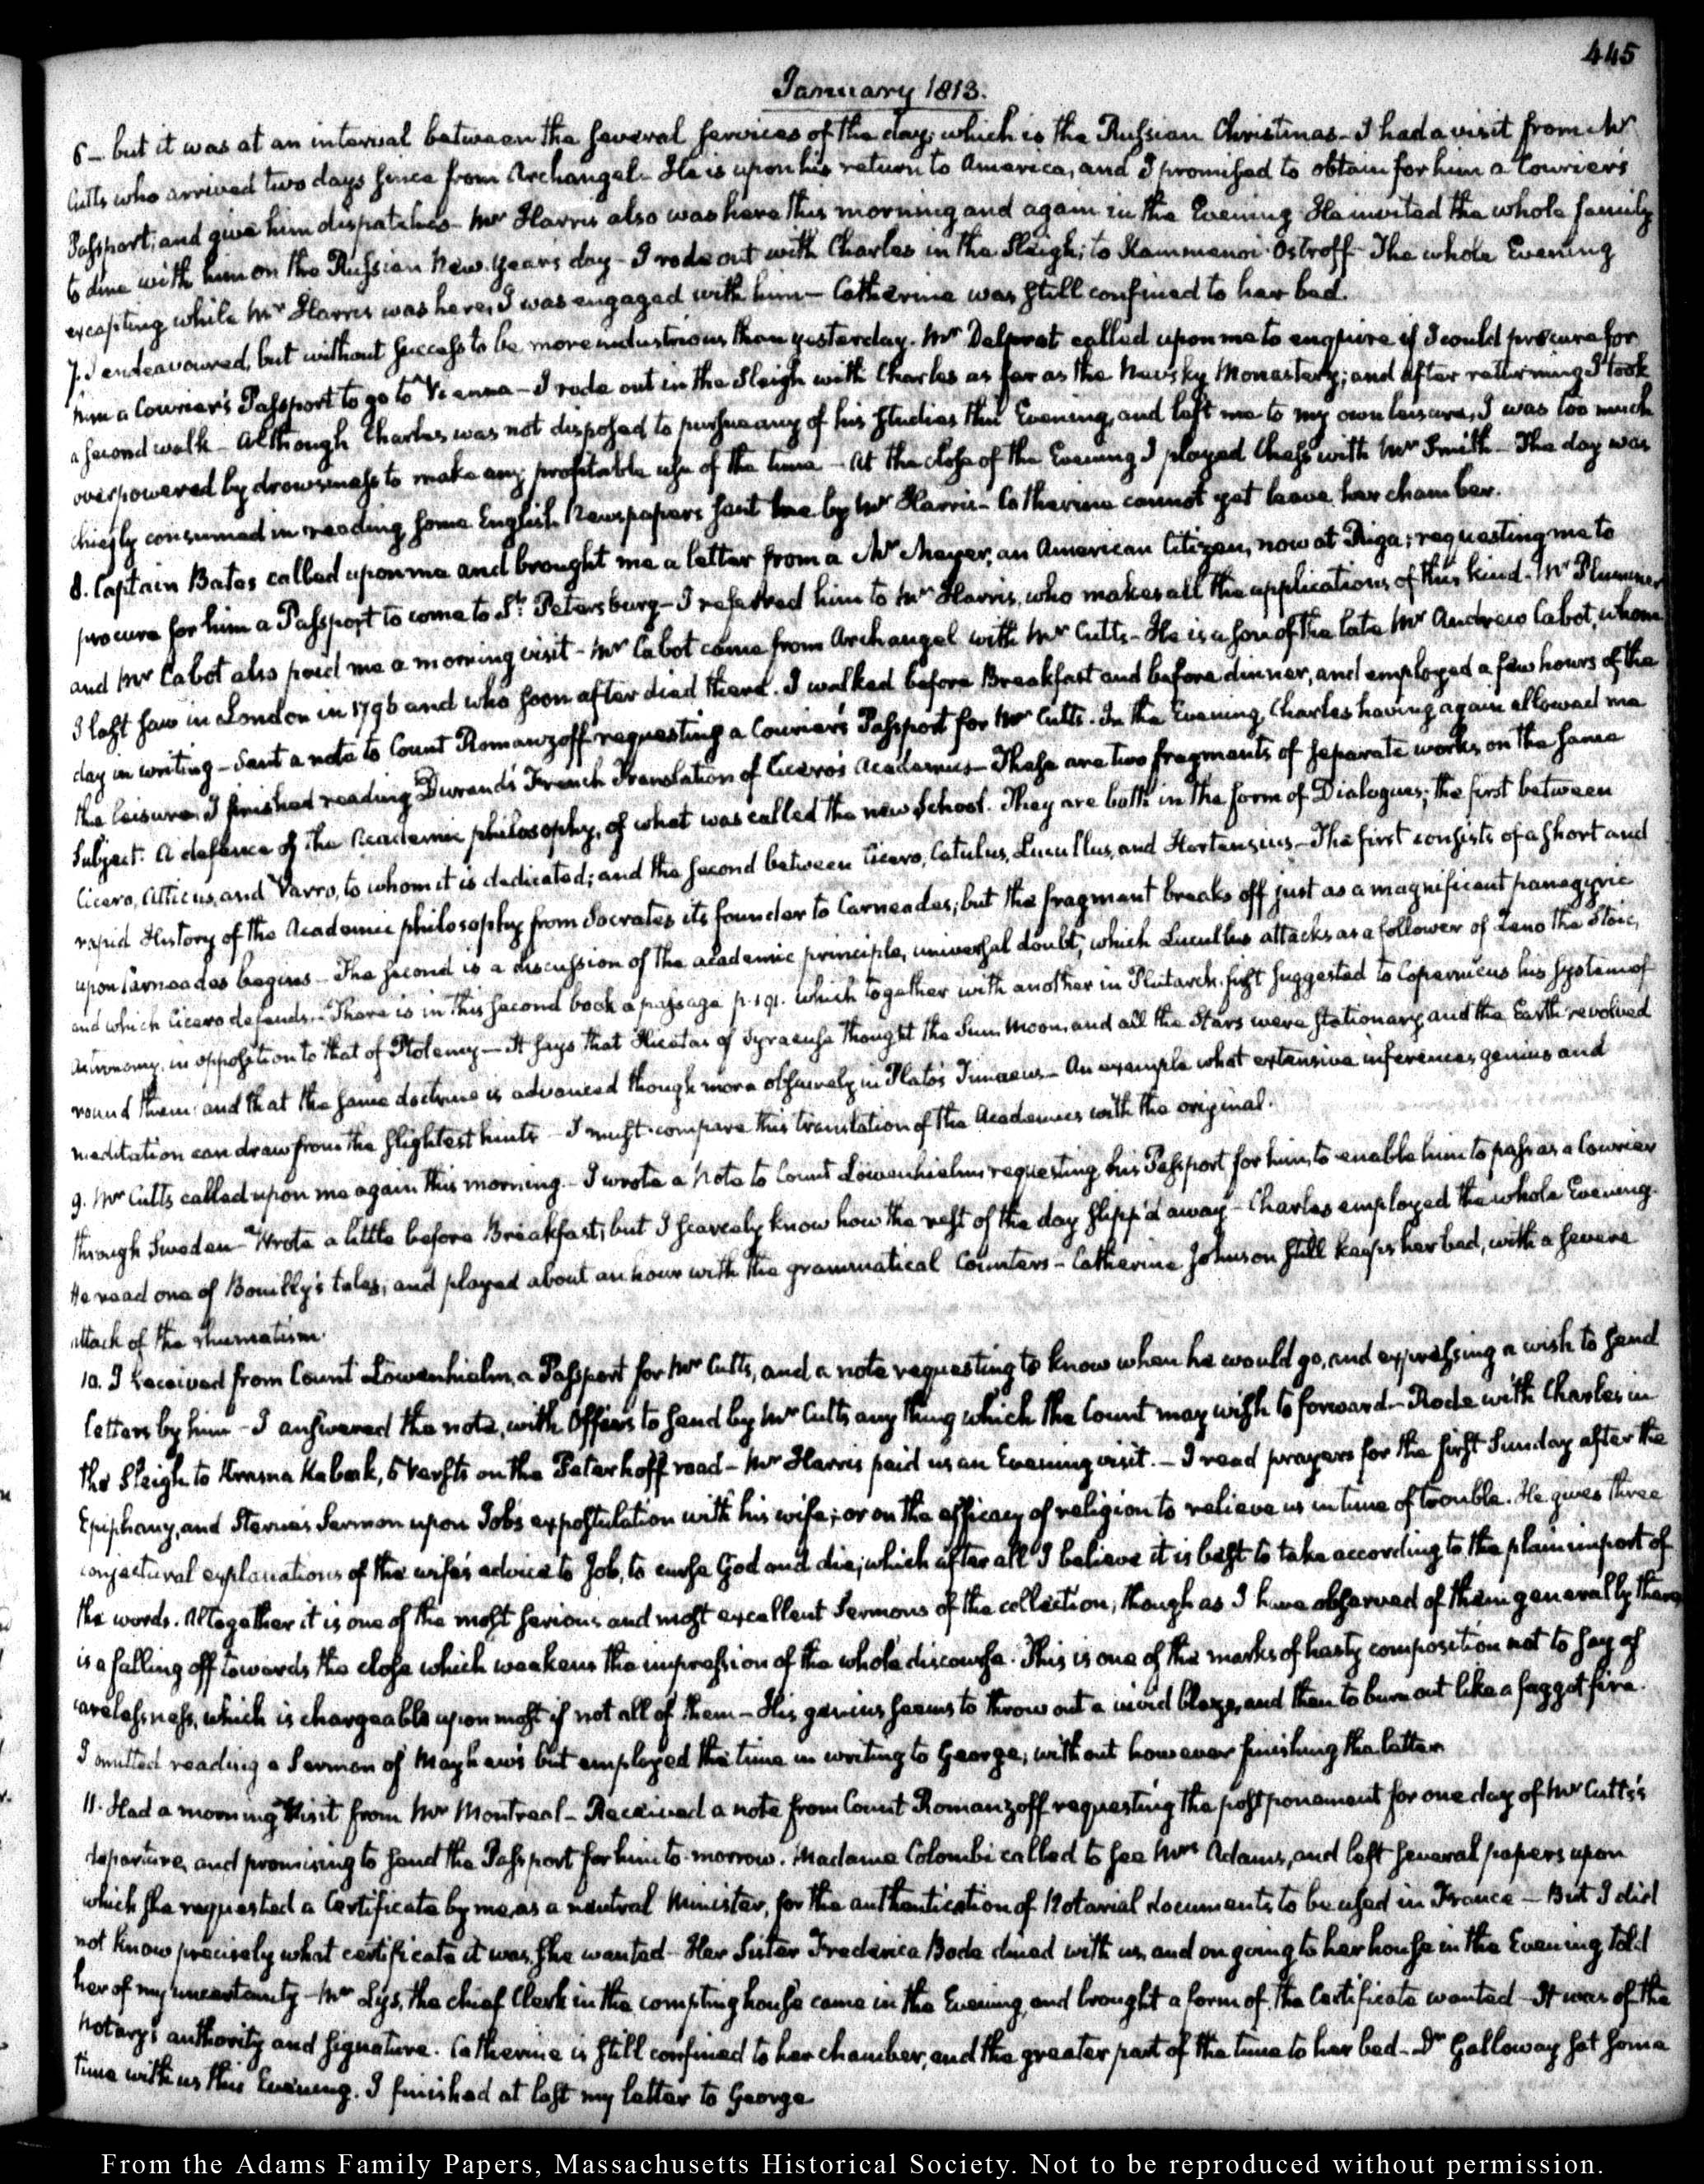 445
January 1813.
6 — but it was at an interval between the several services of the day; which is the Russian Christmas — I had a visit from Mr
Cutts who arrived two days since from Archangel — He is upon his return to America, and I promised to obtain for him a Courier's
Passport; and give him dispatches — Mr Harris also was here this morning and again in the Evening He invited the whole family
to dine with him on the Russian New-Year's day — I rode out with Charles in the Sleigh; to Kammenoi-Ostroff — The whole Evening
excepting while Mr Harris was here, I was engaged with him — Catherine was still confined to her bed.
7. I endeavoured, but without success to be more industrious than yesterday. Mr Delprat called upon me to enquire if I could procure for
him a Courier's Passport to go to Vienna — I rode out in the Sleigh with Charles as far as the Newsky Monastery; and after returning I took
a second walk — Although Charles was not disposed to pursue any of his studies this Evening, and left me to my own leisure, I was too much
overpowered by drowsiness to make any profitable use of the time — At the close of the Evening I played Chess with Mr Smith — The day was
chiefly consumed in reading some English Newspapers sent me by Mr Harris — Catherine cannot yet leave her chamber.
8. Captain Bates called upon me and brought me a letter from a Mr Meyer, an American Citizen, now at Riga; requesting me to
procure for him a Passport to come to St. Petersburg — I referred him to Mr Harris, who makes all the applications of this kind — Mr Plummer
and Mr Cabot also paid me a morning visit — Mr Cabot came from Archangel with Mr Cutts — He is a son of the late Mr Andrew Cabot, whom
I last saw in London in 1796 and who soon after died there. I walked before Breakfast and before dinner, and employed a few hours of the
day in writing — Sent a note to Count Romanzoff requesting a Courier's Passport for Mr Cutts. In the Evening, Charles having again allowed me
the leisure, I finished reading Durand's French Translation of Cicero's Academics — These are two fragments of separate works, on the same
subject. A defence of the Academic philosophy, of what was called the new School. They are both in the form of Dialogues; the first between
Cicero, Atticus, and Varro, to whom it is dedicated; and the second between Cicero, Catulus, Lucullus, and Hortensius — The first consists of a short and
rapid History of the Academic philosophy from Socrates its founder to Carneades; but the fragment breaks off just as a magnificent panegyric
upon Carneades begins — The second is a discussion of the academic principle, universal doubt; which Lucullus attacks as a follower of Zeno the Stoic,
and which Cicero defends. There is in this second book a passage p. 191. which together with another in Plutarch first suggested to Copernicus his system of
Astronomy, in opposition to that of Ptolemy — It says that Hicetas of Syracuse thought the Sun, Moon, and all the Stars were stationary, and the Earth revolved
round them: and that the same doctrine is advanced though more obscurely in Plato's Timaeus — An example what extensive inferences genius and
meditation can draw from the slightest hints — I must compare this translation of the Academics with the original.
9. Mr Cutts called upon me again this morning. — I wrote a Note to Count Löwenhielm requesting his Passport for him, to enable him to pass as a Courier
through Sweden — Wrote a little before Breakfast; but I scarcely know how the rest of the day slipp'd away — Charles employed the whole Evening.
He read one of Bouilly's tales, and played about an hour with the grammatical Counters — Catherine Johnson still keeps her bed, with a severe
attack of the rheumatism.
10. I received from Count Löwenhielm, a Passport for Mr Cutts, and a note requesting to know when he would go, and expressing a wish to send
letters by him — I answered the note, with Offers to send by Mr Cutts any thing which the Count may wish to forward. — Rode with Charles in
the Sleigh to Krasna Kabak, 5 Versts on the Peterhoff road — Mr Harris paid us an Evening visit. — I read prayers for the first Sunday after the
Epiphany, and Sterne's Sermon upon Job's expostulation with his wife; or on the efficacy of religion to relieve us in time of trouble. He gives three
conjectural explanations of the wife's advice to Job, to curse God and die; which after all I believe it is best to take according to the plain import of
the words. Altogether it is one of the most serious and most excellent Sermons of the collection, though as I have observed of them generally there
is a falling off towards the close which weakens the impression of the whole discourse. This is one of the marks of hasty composition not to say of
carelessness, which is chargeable upon most if not all of them — His genius seems to throw out a vivid blaze, and then to burn out like a faggot fire.
I omitted reading a Sermon of Mayhew's but employed the time in writing to George, without however finishing the letter
11. Had a morning Visit from Mr Montreal — Received a note from Count Romanzoff requesting the postponement for one day of Mr Cutts's
departure, and promising to send the Passport for him to-morrow. Madame Colombi called to see Mrs Adams, and left several papers upon
which she requested a Certificate by me, as a neutral Minister, for the authentication of Notarial documents to be used in France — But I did
not know precisely what certificate it was, she wanted — Her Sister Frederica Bode dined with us, and on going to her house in the Evening told
her of my uncertainty — Mr Lys, the chief Clerk in the compting house came in the Evening, and brought a form of the Certificate wanted — It was of the
Notary's authority and signature. Catherine is still confined to her chamber, and the greater part of the time to her bed — Dr Galloway sat some
time with us this Evening. I finished at last my letter to George
From the Adams Family Papers, Massachusetts Historical Society. Not to be reproduced without permission.